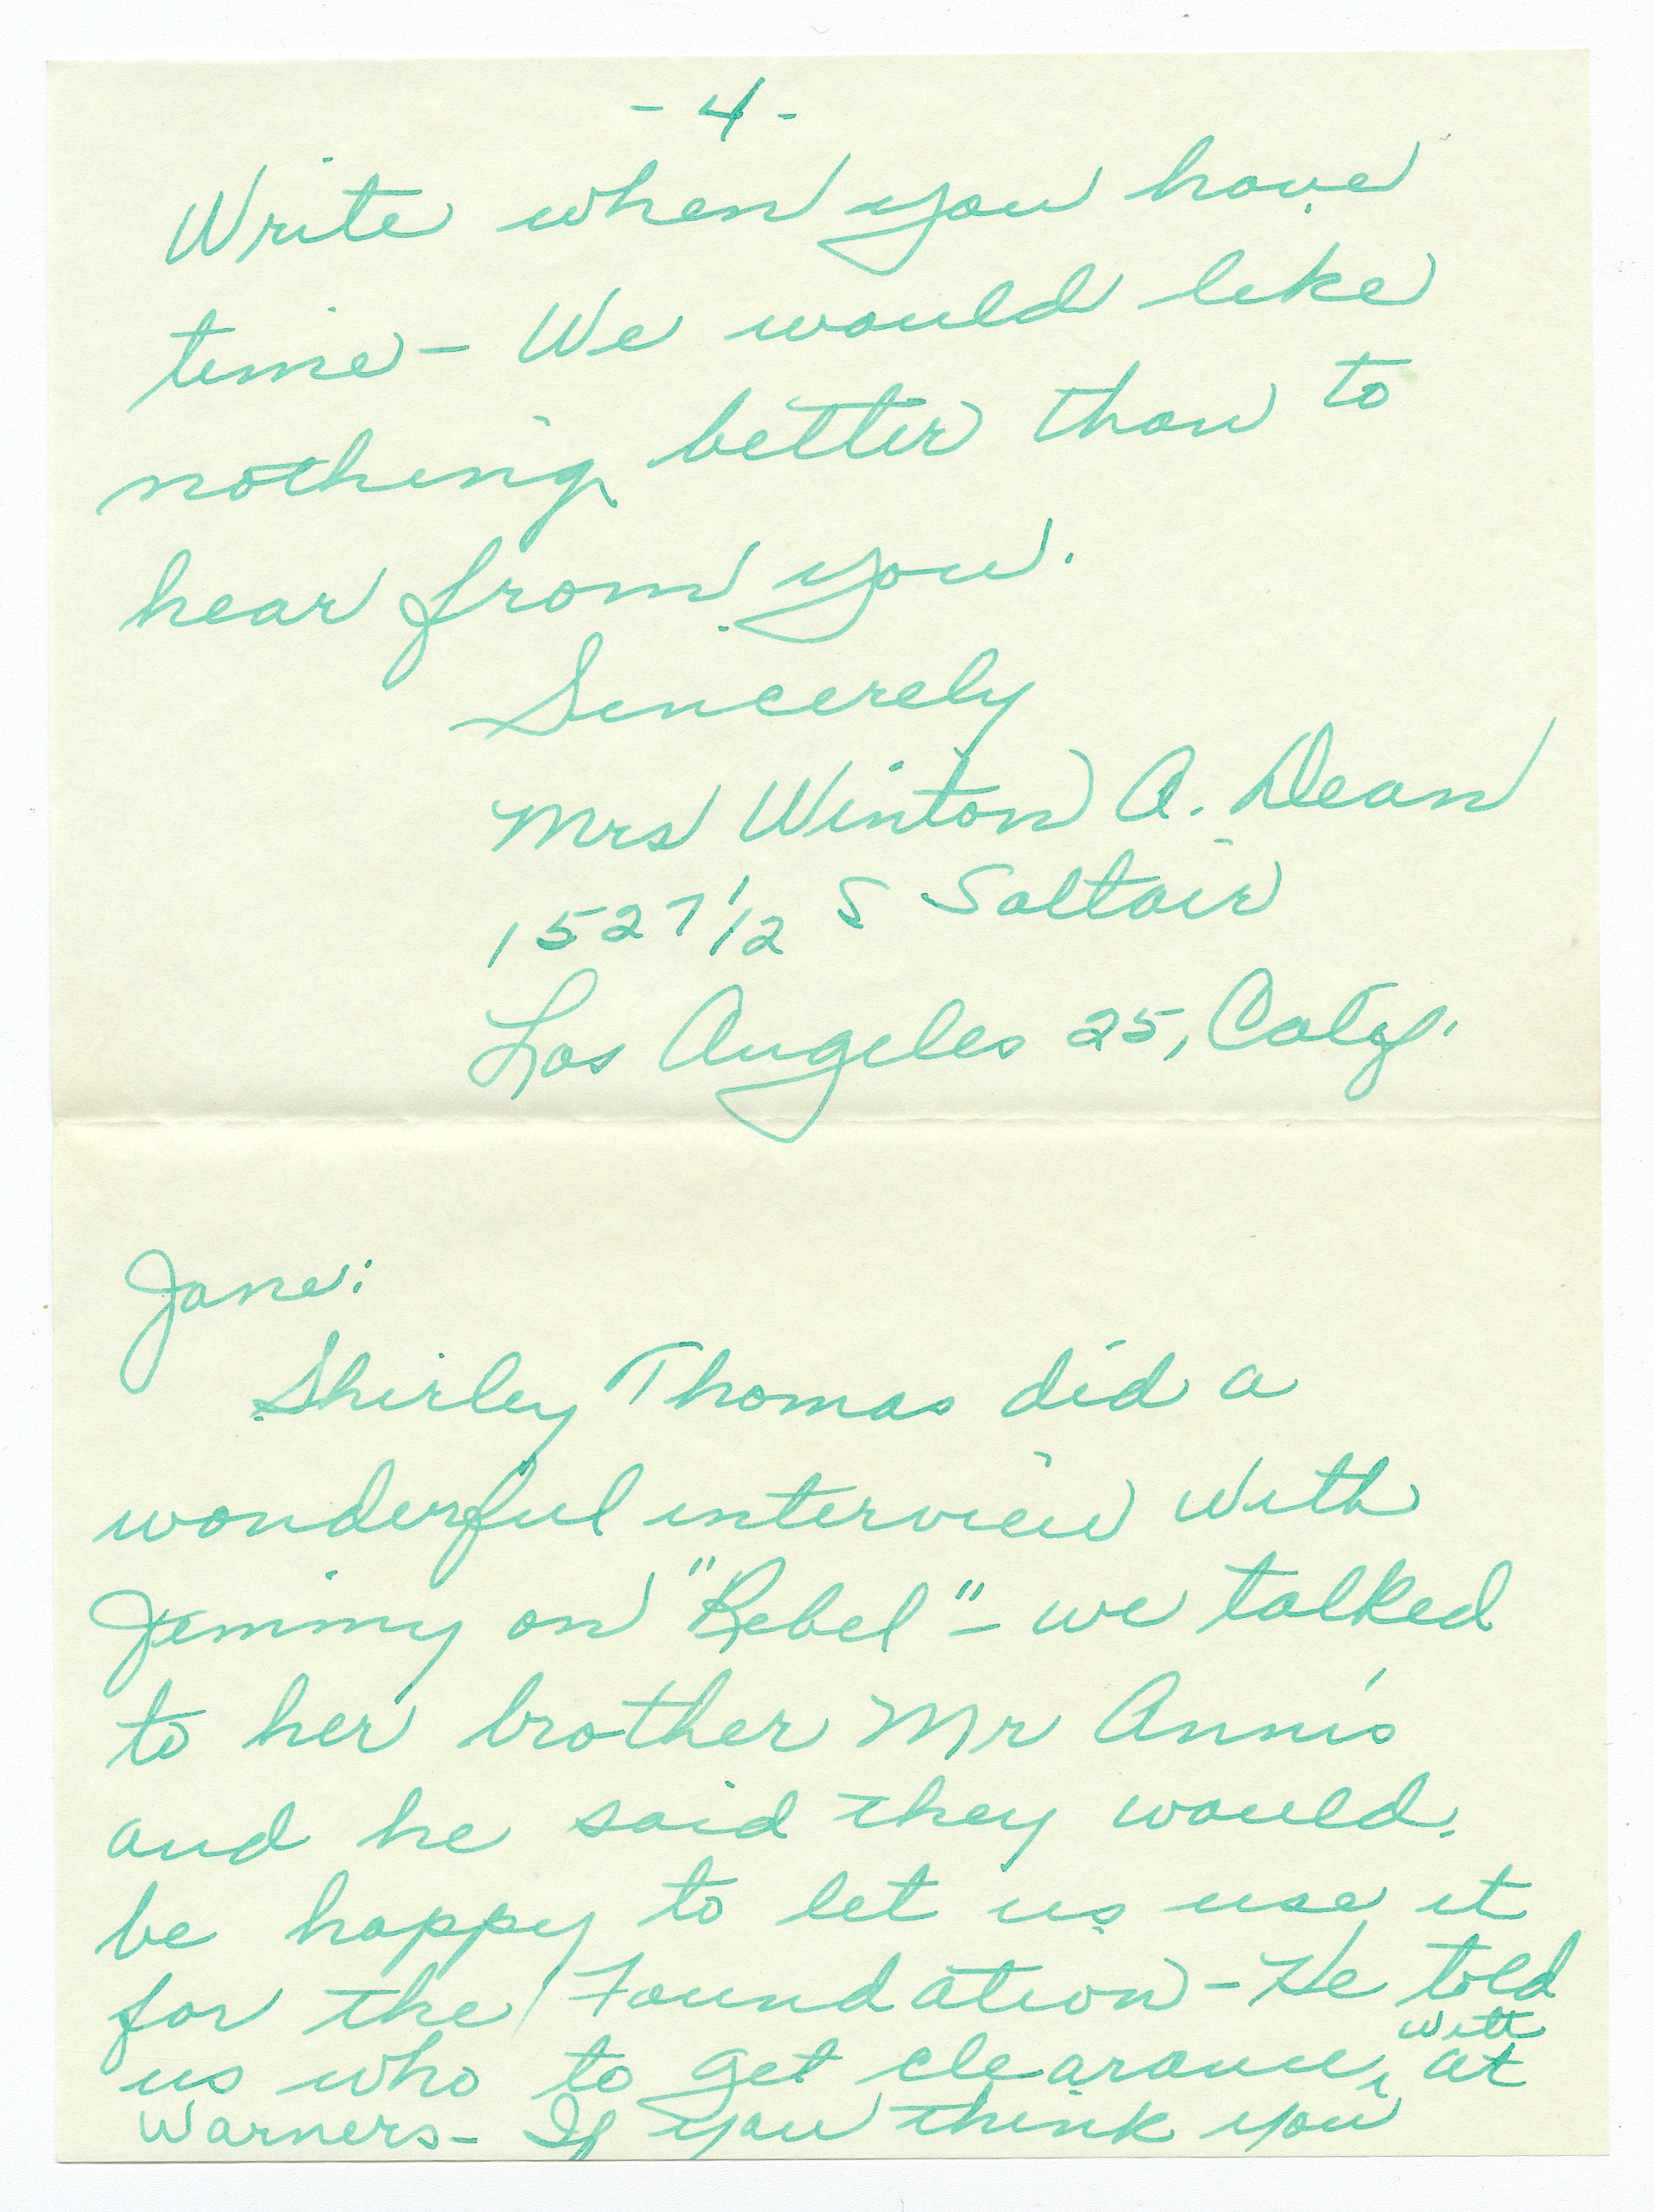 - 4 -
Write when you have
time - We would like
nothing better than to
hear from you.
Sincerely
Mrs Winton A. Dean
1527 1/2 S Saltair
Los Angeles 25, Calif.
Jane:
Shirley Thomas did a
wonderful interview with
Jimmy on "Rebel" - we talked
to her brother Mr Annis
and he said they would
be happy to let us use it
for the Foundation - He told
us who to get clearance with at
Warners - If you think you